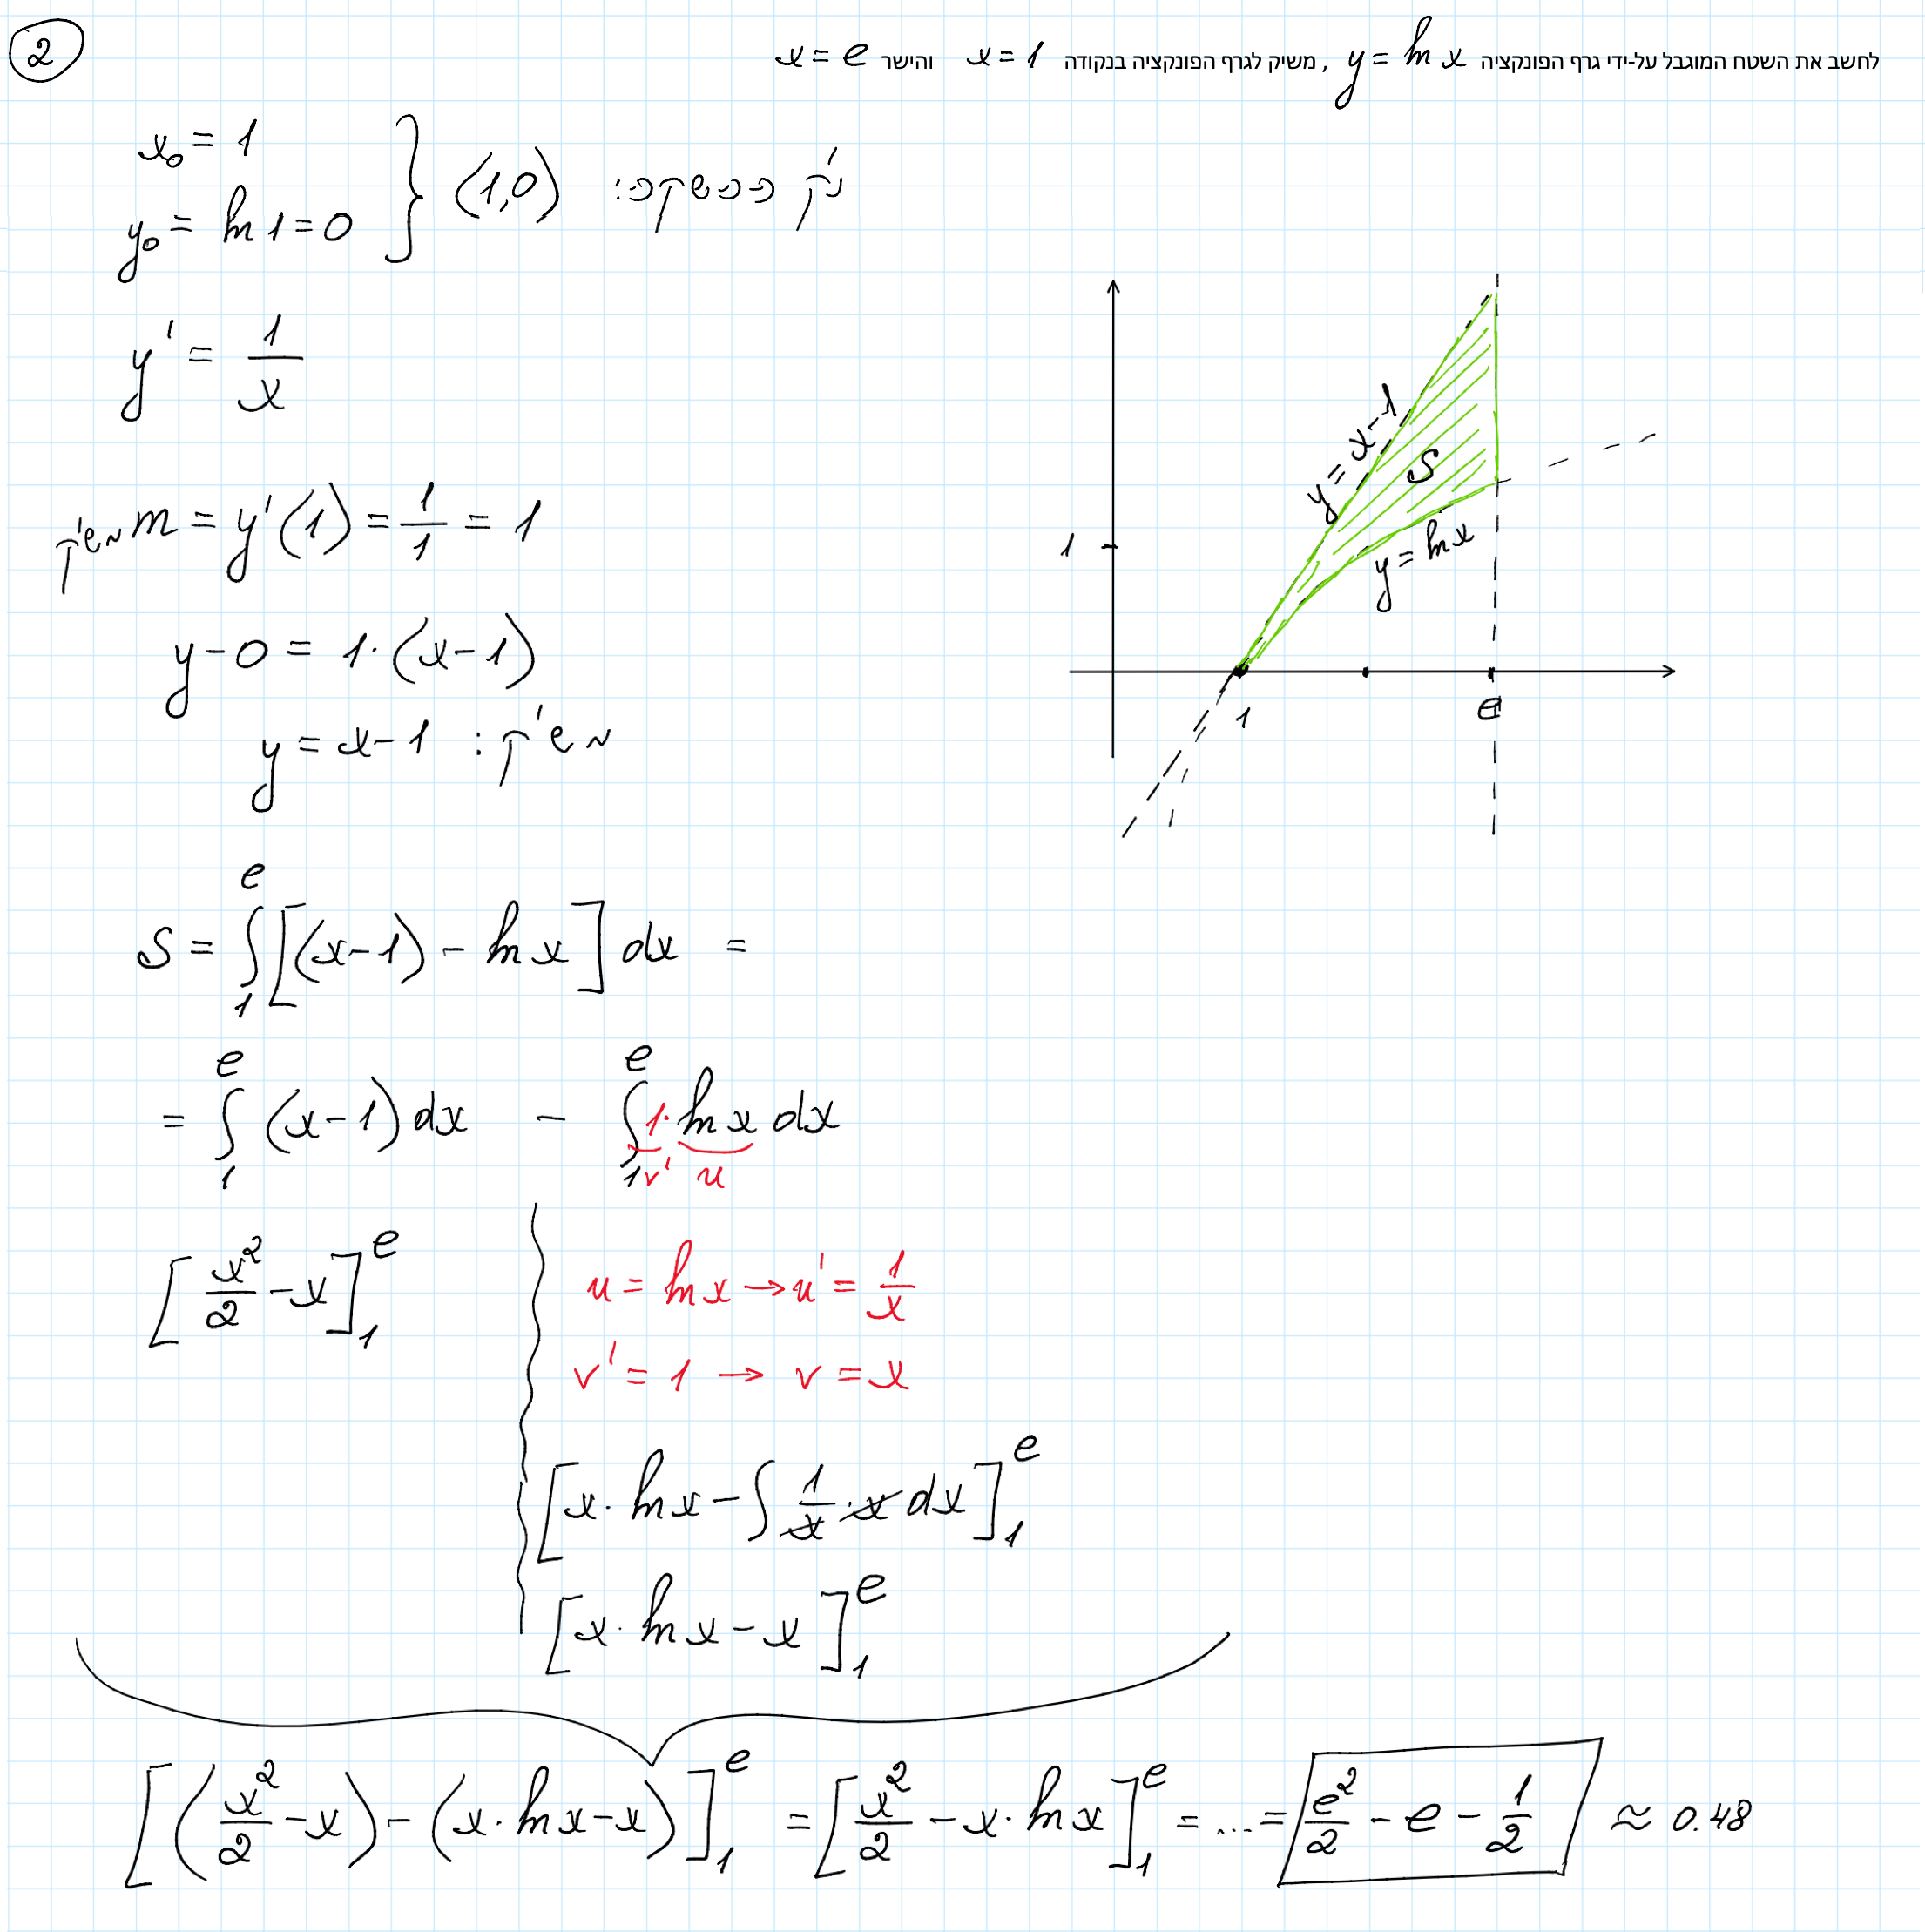 2
לחשב את השטח המוגבל על-ידי גרף הפונקציה y = ln x , משיק לגרף הפונקציה בנקודה x = 1 והישר x = e
x₀ = 1
y₀ = ln 1 = 0
} (1,0) נק' ההשקה:
y' = 1/x
m משיק = y'(1) = 1/1 = 1
y - 0 = 1·(x-1)
משיק: y = x-1
y = x-1
S
y = ln x
1
1
e
S = ∫₁ᵉ [(x-1) - ln x] dx =
= ∫₁ᵉ (x-1) dx - ∫₁ᵉ 1· ln x dx
v' u
[x²/2 - x]₁ᵉ
u = ln x → u' = 1/x
v' = 1 → v = x
[x· ln x - ∫ 1/x · x dx]₁ᵉ
[x· ln x - x]₁ᵉ
[(x²/2 - x) - (x· ln x - x)]₁ᵉ = [x²/2 - x· ln x]₁ᵉ = ... = e²/2 - e - 1/2 ≈ 0.48